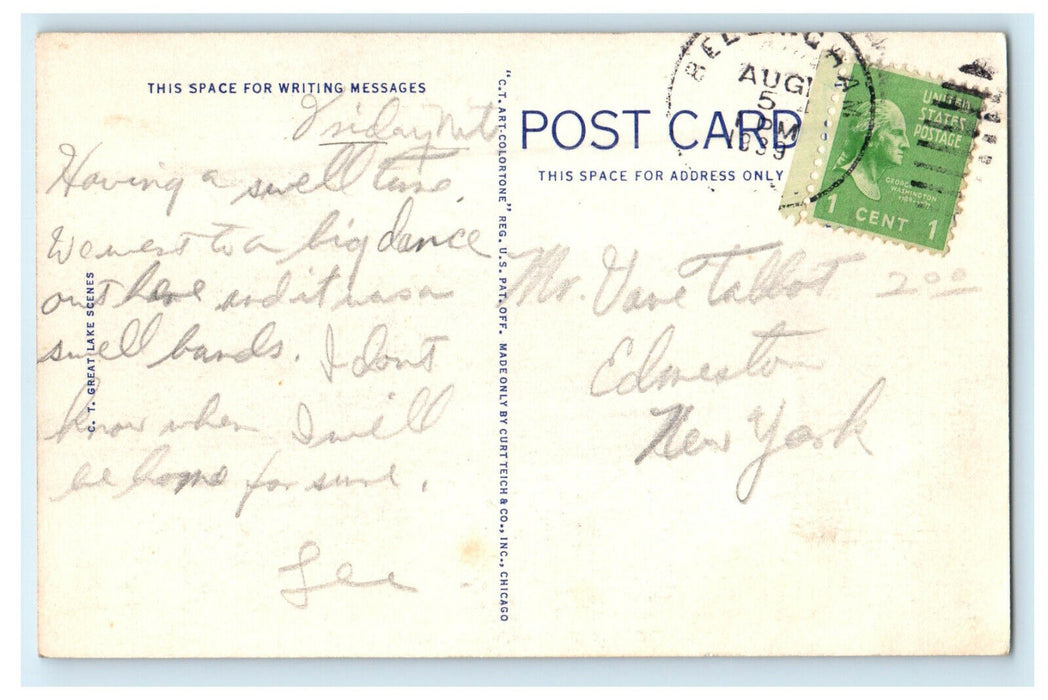 THIS SPACE FOR WRITING MESSAGES
Friday Nite
Having a swell time.
We went to a big dance
out here and it was a
swell bands. I dont
know when I will
be home for sure.
Lee
C. T. GREAT LAKE SCENES
"C.T. ART-COLORTONE" REG. U.S. PAT. OFF. MADE ONLY BY CURT TEICH & CO., INC., CHICAGO
POST CARD
THIS SPACE FOR ADDRESS ONLY
AUG
5
PM
1939
UNITED
STATES
POSTAGE
GEORGE
WASHINGTON
1 CENT 1
Mr. Vane Talbot 2.00
Edmeston
New York